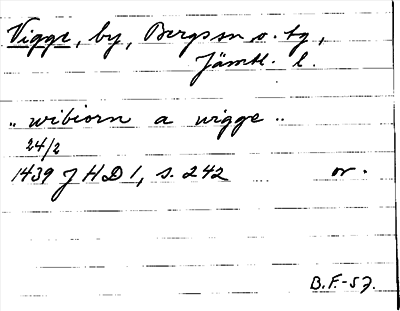 Vigge, by, Bergs sn o. tg,
Jämtl. l.
„ wibiorn a vigge "
24/2
1439 JHD 1, s. 242 or.
B.F.-57.